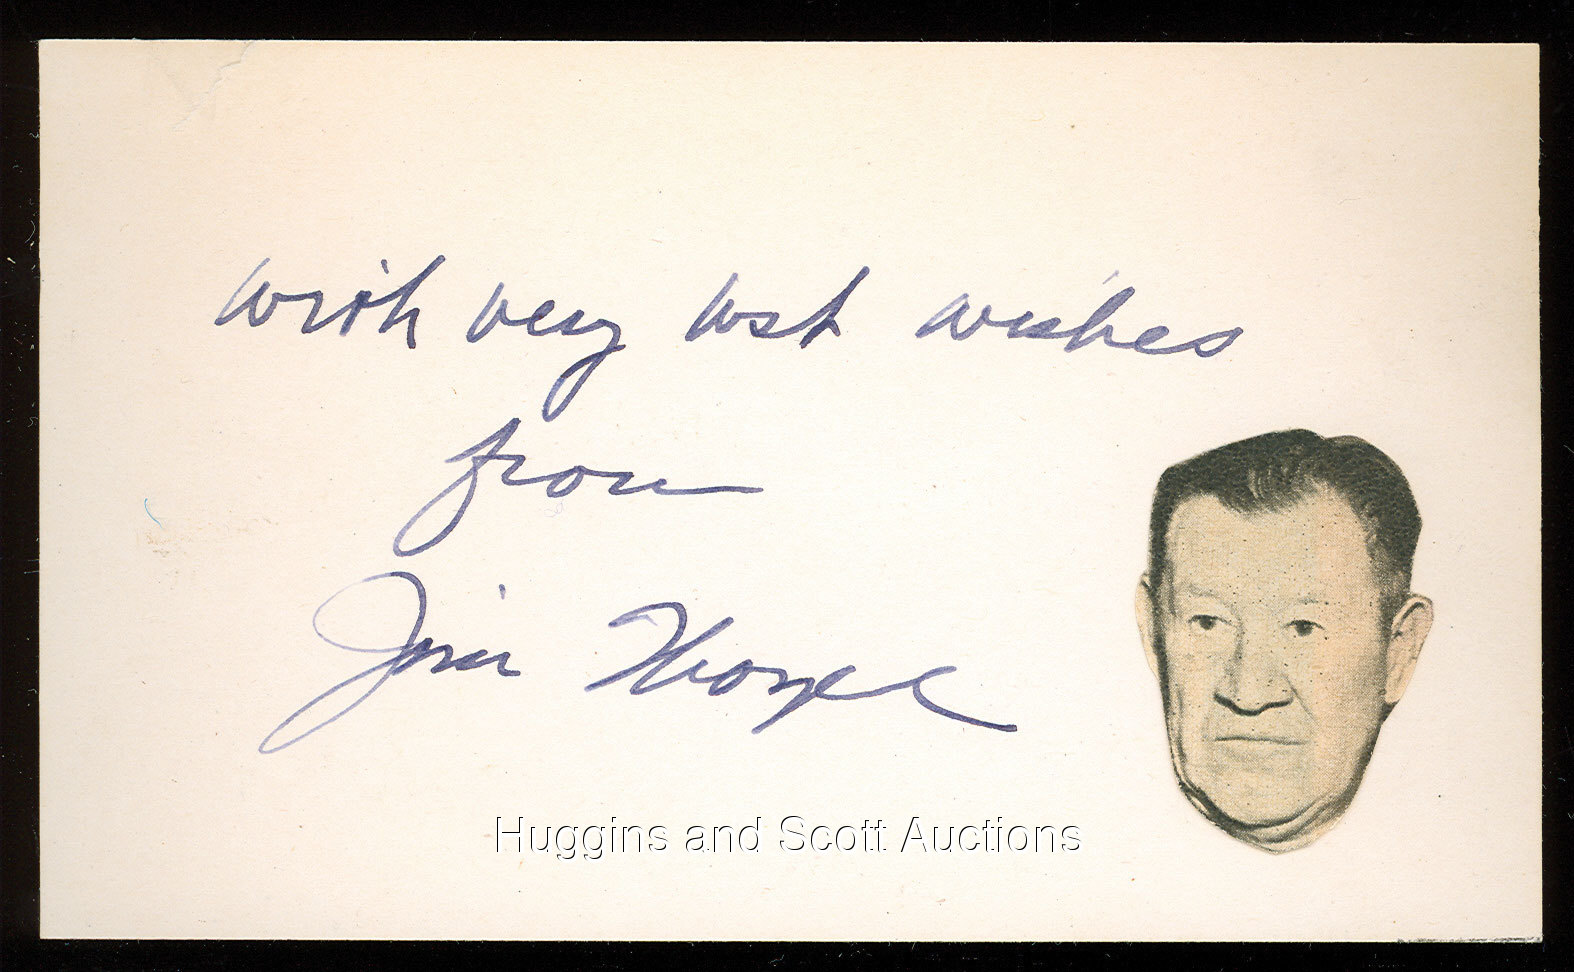 with very best wishes
from
Jim Thorpe
Huggins and Scott Auctions